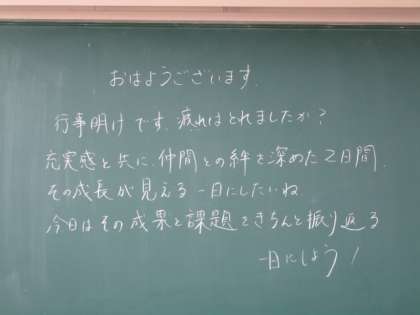 おはようございます.
行事明けです.疲れはとれましたか?
充実感と共に.仲間との絆を深めた2日間.
その成長が見える一日にしたいね
今日はその成果と課題をきちんと振り返る
一日にしよう!